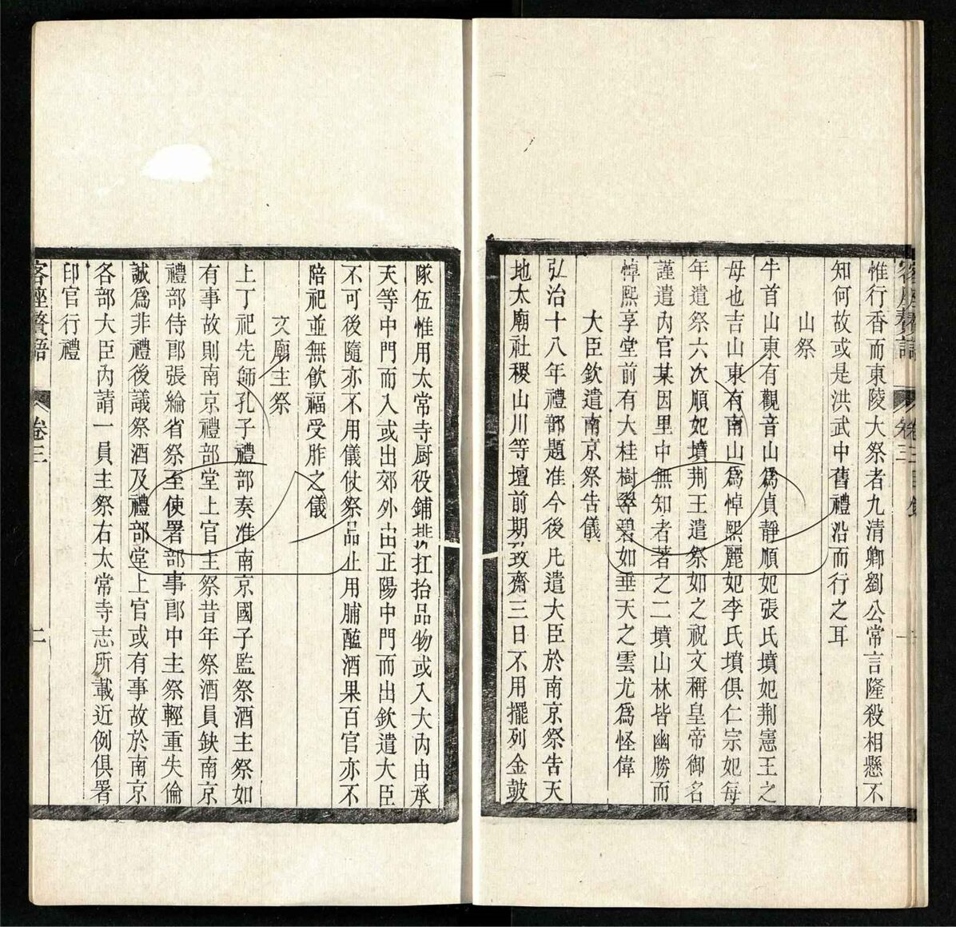 惟行香而東陵大祭者九清卿劉公常言隆殺相懸不
知何故或是洪武中舊禮沿而行之耳
山祭
牛首山東有觀音山爲貞靜順妃張氏墳妃荆憲王之
母也吉山東有南山爲悼熙麗妃李氏墳俱仁宗妃每
年遣祭六次順妃墳荆王遣祭如之祝文稱皇帝御名
謹遣內官某因里中無知者著之二墳山林皆幽勝而
悼熙享堂前有大桂樹翠碧如垂天之雲尤爲怪偉
大臣欽遣南京祭告儀
弘治十八年禮部題准今後凡遣大臣於南京祭告天
地太廟社稷山川等壇前期致齋三日不用擺列金鼓
隊伍惟用太常寺厨役鋪排扛抬品物或入大內由承
天等中門而入或出郊外由正陽中門而出欽遣大臣
不可後隨亦不用儀仗祭品止用脯醢酒果百官亦不
陪祀並無飲福受胙之儀
文廟主祭
上丁祀先師孔子禮部奏准南京國子監祭酒主祭如
有事故則南京禮部堂上官主祭昔年祭酒員缺南京
禮部侍郎張綸省祭至使署部事郎中主祭輕重失倫
誠爲非禮後議祭酒及禮部堂上官或有事故於南京
各部大臣內請一員主祭右太常寺志所載近例俱署
印官行禮
客座贅語 卷三 二